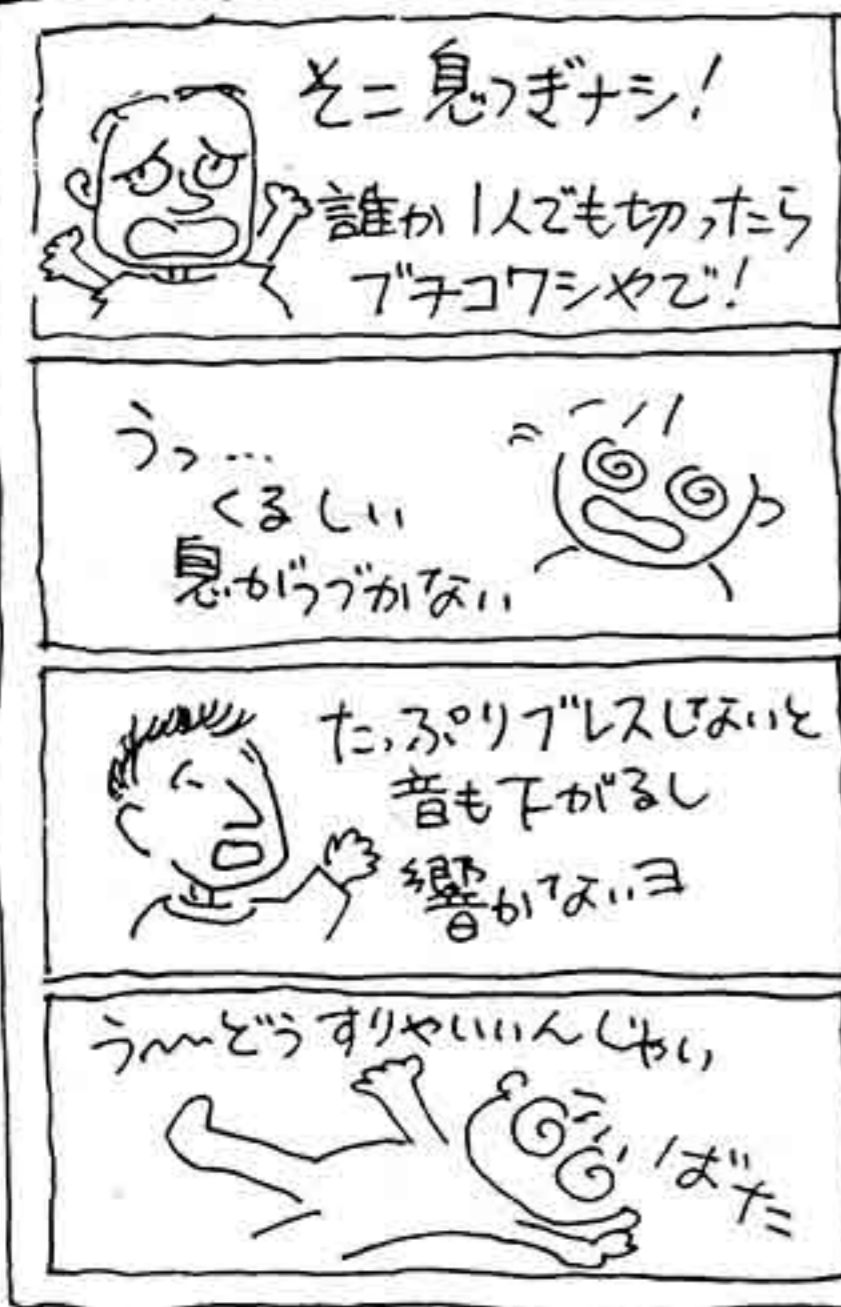 そこ息つぎナシ！
誰か1人でも切ったら
ブチコワシやで！
うっ…
くるしい
息がつづかない
たっぷりブレスしないと
音も下がるし
響かないヨ
う〜〜どうすりやいいんじゃい
ばたっ